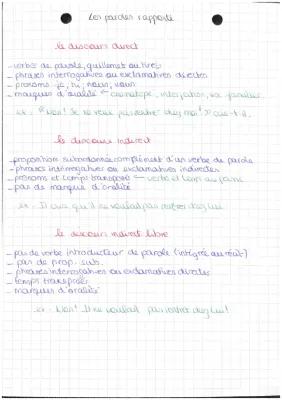 Les paroles rapportées
le discours direct
- verbe de parole, guillemets ou tirets
- phrases interrogatives ou exclamatives directes
- pronoms je, tu, nous, vous
- marques d'oralité
ex : "Non! Je ne veux pas rentrer chez moi" dit-il.
le discours indirect
- proposition subordonnée complément d'un verbe de parole
- phrases interrogatives ou exclamatives indirectes
- pronoms et temps transposés verbe et temps au passé
- pas de marque d'oralité
ex : Il qu'il ne voulait pas rentrer chez lui
le discours indirect libre
- pas de verbe introducteur de parole (intégré au récit)
- pas de prop. sub.
- phrases interrogatives ou exclamatives directes
- temps transposés
- marques d'oralité
ex : Non! Il ne voulait pas rentrer chez lui!